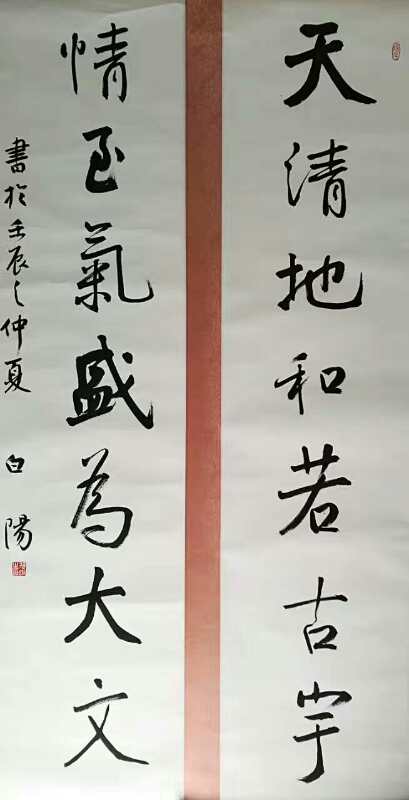 天清地和若古宇
情至氣盛為大文
書於壬辰之仲夏 白陽